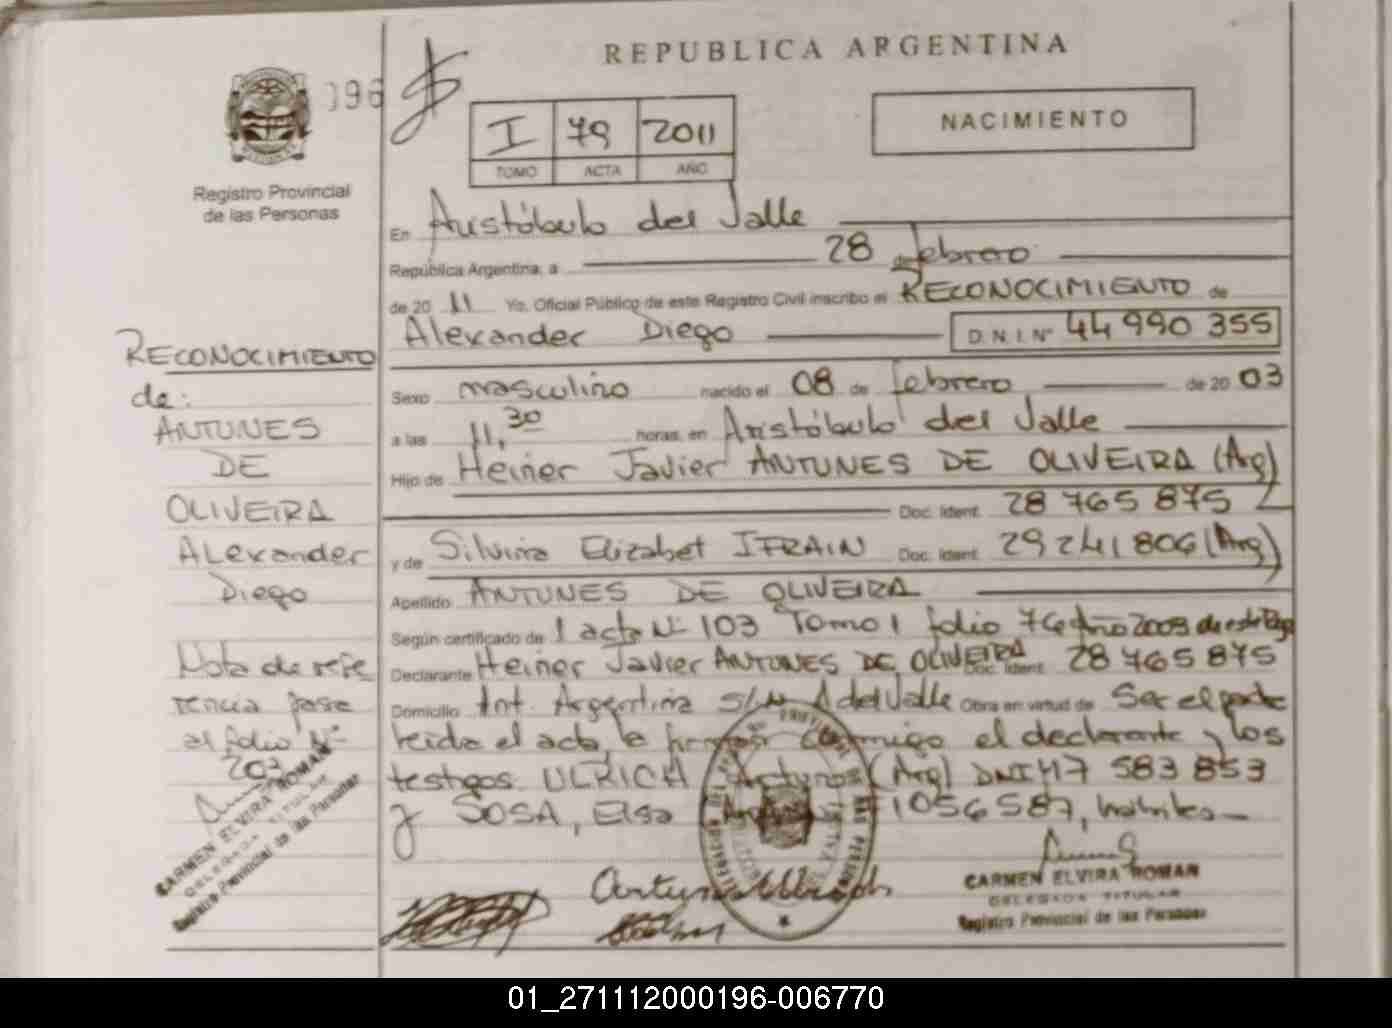 REPUBLICA ARGENTINA
096
I 79 2011
TOMO ACTA AÑO
NACIMIENTO
Registro Provincial
de las Personas
En Aristóbulo del Valle
República Argentina, a 28 de febrero
de 20 11 Yo, Oficial Público de este Registro Civil inscribo el RECONOCIMIENTO de
Alexander Diego D.N.I. Nº 44 990 355
Sexo masculino nacido el 08 de febrero de 20 03
a las 11,30 horas, en Aristóbulo del Valle
Hijo de Heiner Javier ANTUNES DE OLIVEIRA (Arg)
Doc. Ident. 28 765 875
y de Silvina Elizabet IFRAIN Doc. Ident. 29 241 806 (Arg)
Apellido ANTUNES DE OLIVEIRA
Según certificado de 1 acta Nº 103 Tomo 1 folio 76 Año 2003 de este
Declarante Heiner Javier ANTUNES DE OLIVEIRA Doc. Ident. 28 765 875
Domicilio Int. Argentina S/Nº A del Valle Obra en virtud de Ser el padre
leida el acta, la firman conmigo el declarante y los
testigos ULRICH, Arturo (Arg) DNI 17 583 853
y SOSA, Elsa 1056587, hábiles
RECONOCIMIENTO
de:
ANTUNES
DE
OLIVEIRA
Alexander
Diego
Nota de refe
rencia pase
al folio Nº
202
CARMEN ELVIRA ROMAN
DELEGADA TITULAR
Registro Provincial de las Personas
CARMEN ELVIRA ROMAN
DELEGADA TITULAR
Registro Provincial de las Personas
01_271112000196-006770